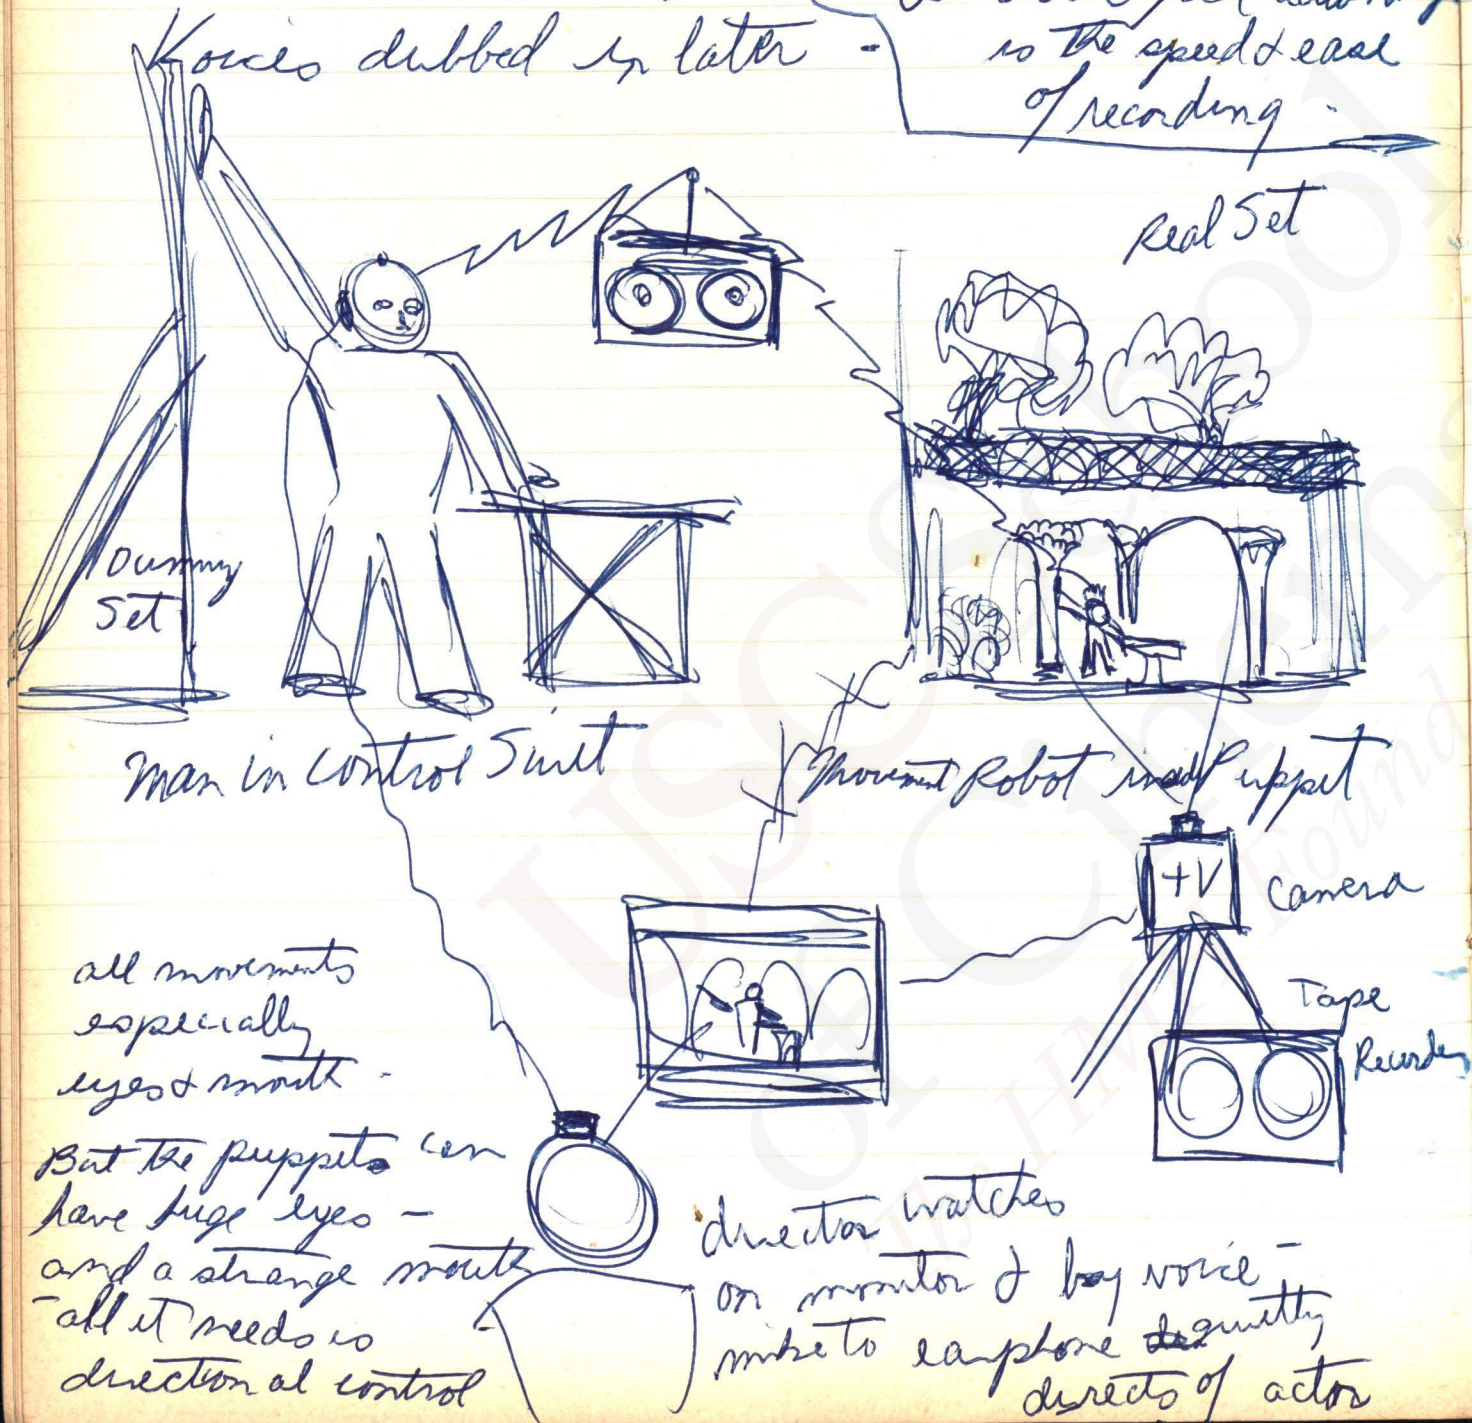 Voices dubbed in later -
is the speed & ease
of recording -
Real Set
Dummy
Set
Man in Control Suit
Movement Robot inside Puppet
TV
Camera
Tape
Recorder
all movements
especially
eyes & mouth -
But the puppets can
have huge eyes -
and a strange mouth
- all it needs is
directional control
director watches
on monitor & by voice -
mike to earphone quietly
directs actor
USC School
of Cinema
The HMH Found